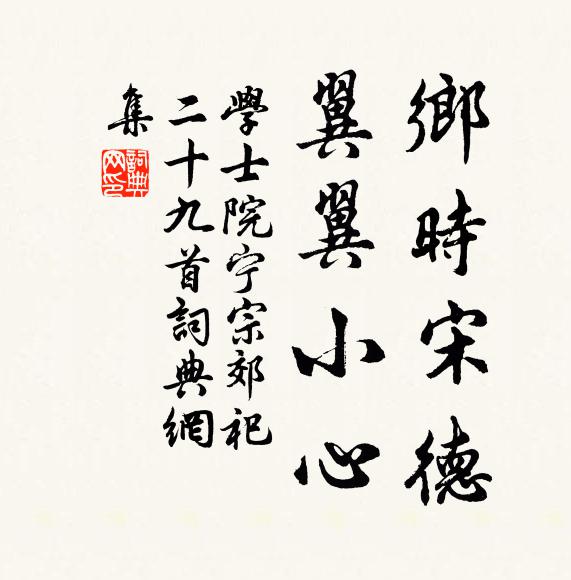 鄉時宋德
翼翼小心
學士院宁宗郊祀
二十九首詞典網
集
詞典网印